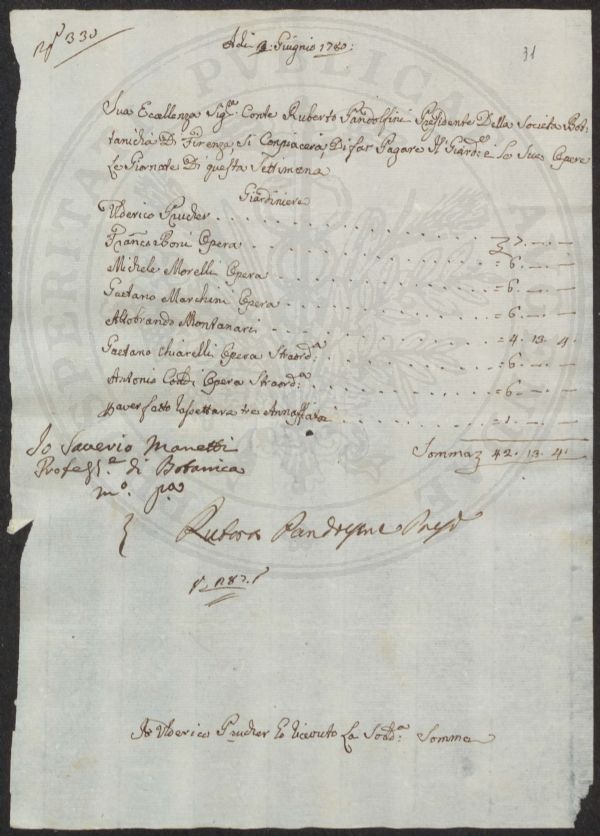 N° 330
Adi 3: Giugnio 1780:
31
Sua Eccellenza Sig.e Conte Ruberto Pandolfini Presidente Della Societa Bot-
tanicha Di Firenza, Si Conpiacera, Di far Pagare Il Giard:e e Le Sue Opere
Le Giornate Di questa Settimana
Giardiniere
Ulderico Prucher . . . . . . . . . . 7. — . —
Franc.o Boni Opera . . . . . . . . . . = 6. — . —
Michele Morelli Opera . . . . . . . . . . = 6. — . —
Gaetano Marchini Opera . . . . . . . . . . = 6. — . —
Aldobrando Montanari . . . . . . . . . . = 4. 13. 4.
Gaetano Chiarelli Opera Straord:a . . . . . . . . . . = 6. — . —
Antonio Conti Opera Straord:a . . . . . . . . . . = 6. — . —
P aver fatto tre Annaffiatoi . . . . . . . . . . = 1. — . —
Somma 42. 13. 4.
Io Saverio Manetti
Profess.e di Botanica
m.o p.a
Ruberto Pandolfini Presid
Io Ulderico Prucher O Riceuto La Sod:a Somma
PUBLICA